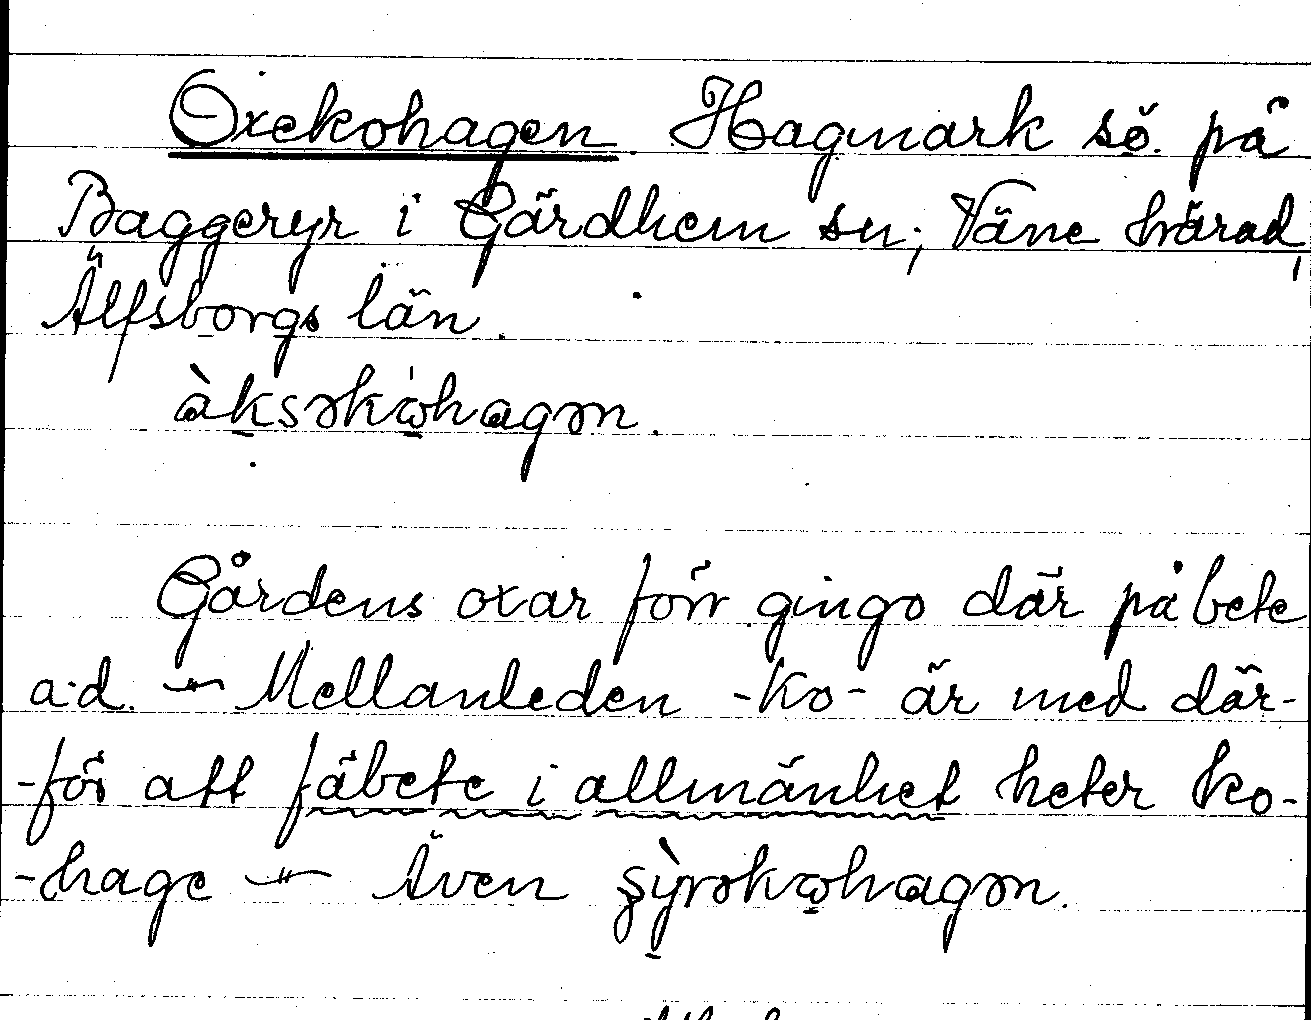 Oxekohagen. Hagmark sö. på
Baggeryr i Gärdhem sn; Väne härad,
Älfsborgs län.
àksəkωhagən.
Gårdens oxar förr gingo där på bete
a.d. — Mellanleden -ko- är med där-
-för att fäbete i allmänhet heter ko-
-hage — Även şỳrəkωhagən.